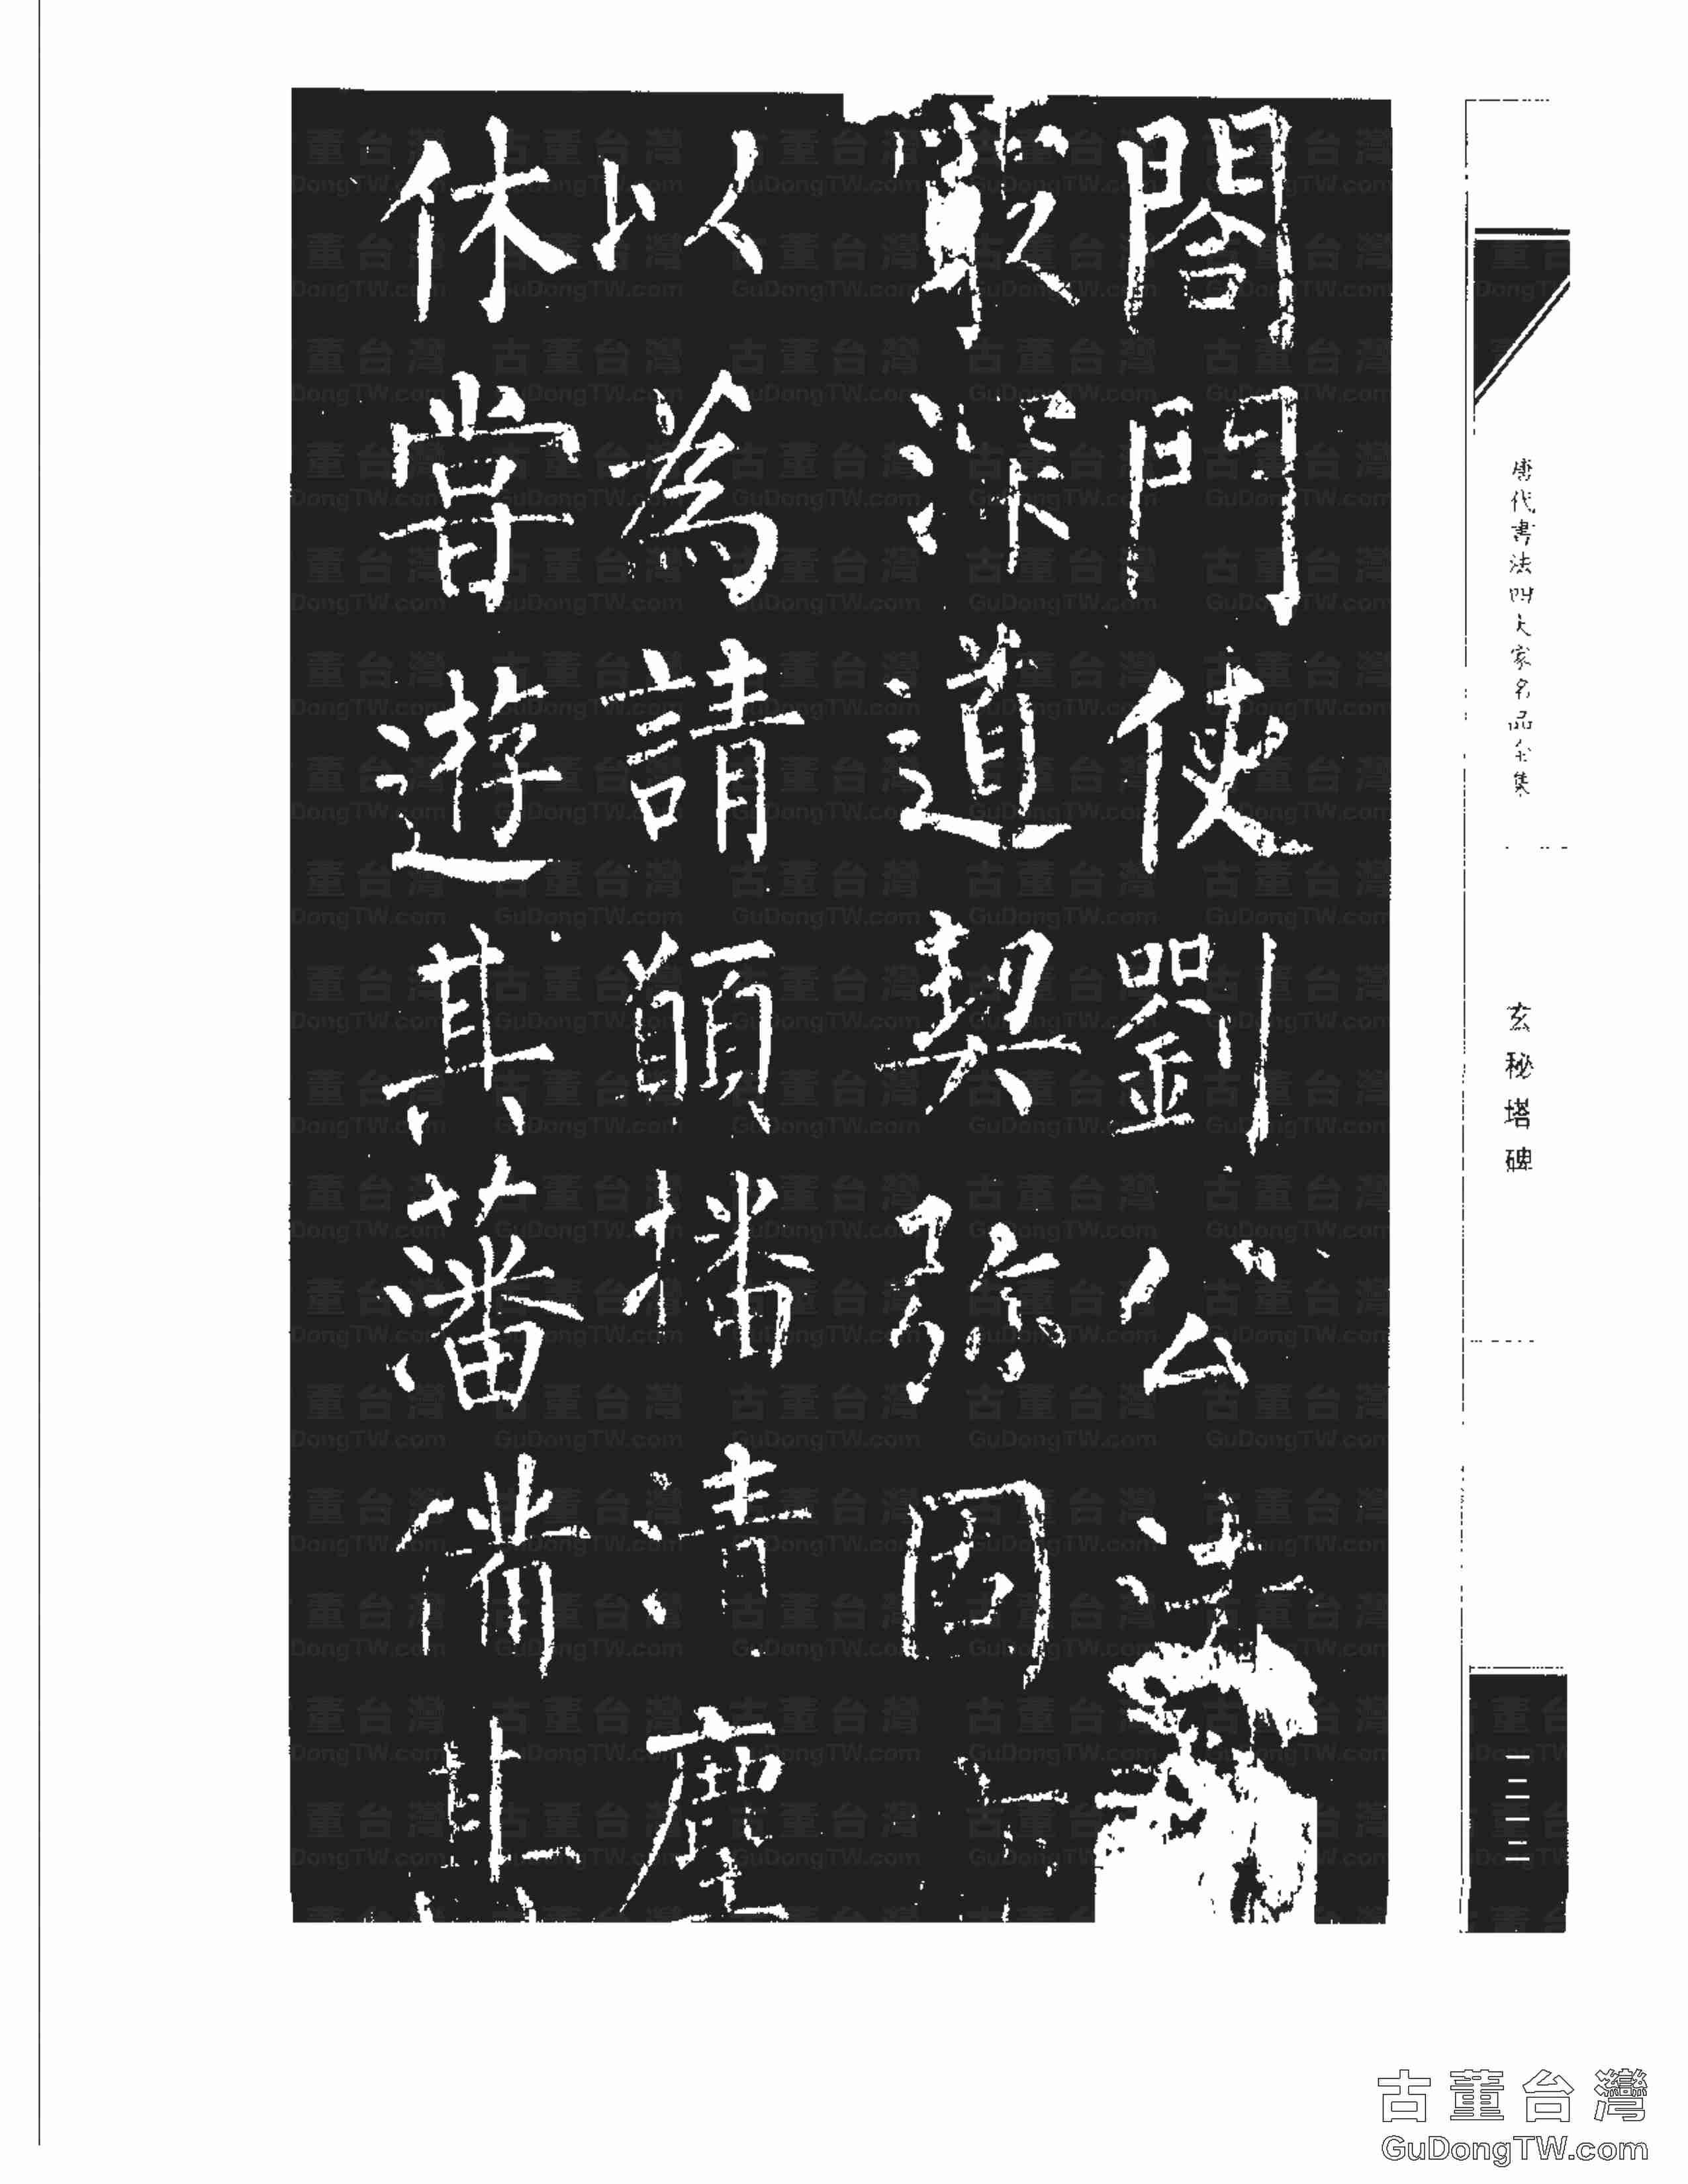 閤門使劉公法
最深道契弥固
以為請願播清塵
休嘗遊其藩備其
唐代書法四大家名品全集
玄秘塔碑
古董台灣
GuDongTW.com